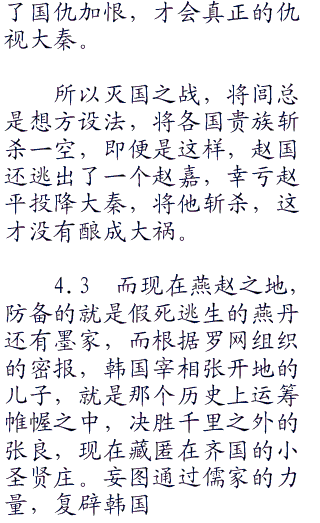 了国仇加恨，才会真正的仇
视大秦。
所以灭国之战，将闾总
是想方设法，将各国贵族斩
杀一空，即便是这样，赵国
还逃出了一个赵嘉，幸亏赵
平投降大秦，将他斩杀，这
才没有酿成大祸。
4.3 而现在燕赵之地，
防备的就是假死逃生的燕丹
还有墨家，而根据罗网组织
的密报，韩国宰相张开地的
儿子，就是那个历史上运筹
帷幄之中，决胜千里之外的
张良，现在藏匿在齐国的小
圣贤庄。妄图通过儒家的力
量，复辟韩国